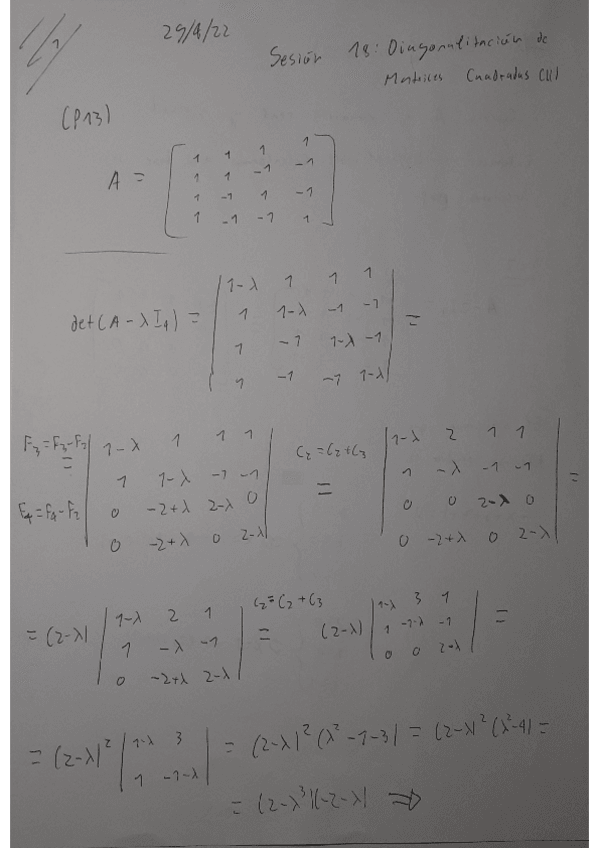 29/4/22
Sesión 18: Diagonalización de
Matrices Cuadradas (II)
(P13)
A = [ 1 1 1 1
1 1 -1 -1
1 -1 1 -1
1 -1 -1 1 ]
det(A - λI₄) = | 1-λ 1 1 1
1 1-λ -1 -1
1 -1 1-λ -1
1 -1 -1 1-λ | =
F₃=F₃-F₂ = F₄=F₄-F₂ | 1-λ 1 1 1
1 1-λ -1 -1
0 -2+λ 2-λ 0
0 -2+λ 0 2-λ |
C₂=C₂+C₃ = | 1-λ 2 1 1
1 -λ -1 -1
0 0 2-λ 0
0 -2+λ 0 2-λ | =
= (2-λ) | 1-λ 2 1
1 -λ -1
0 -2+λ 2-λ |
C₂=C₂+C₃ = (2-λ) | 1-λ 3 1
1 -1-λ -1
0 0 2-λ | =
= (2-λ)² | 1-λ 3
1 -1-λ | = (2-λ)² (λ²-1-3) = (2-λ)² (λ²-4) =
= (2-λ³)(-2-λ) ⇒